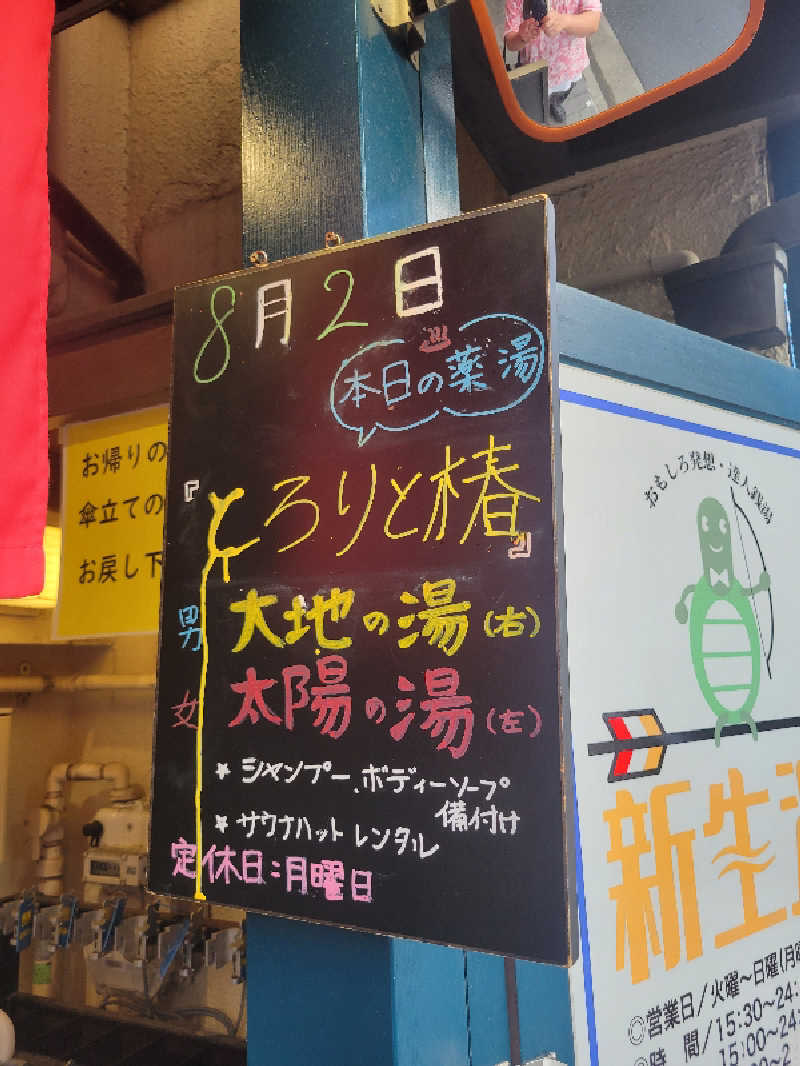 8月2日
本日の薬湯
『とろりと椿』
男 大地の湯(右)
女 太陽の湯(左)
* シャンプー、ボディーソープ
備付け
* サウナハット レンタル
定休日:月曜日
お帰りの
傘立ての
お戻し下
おもしろ発想・達人銭湯
新生湯
◎営業日/火曜~日曜(月曜
◎時 間/15:30~24:
15:00~24: